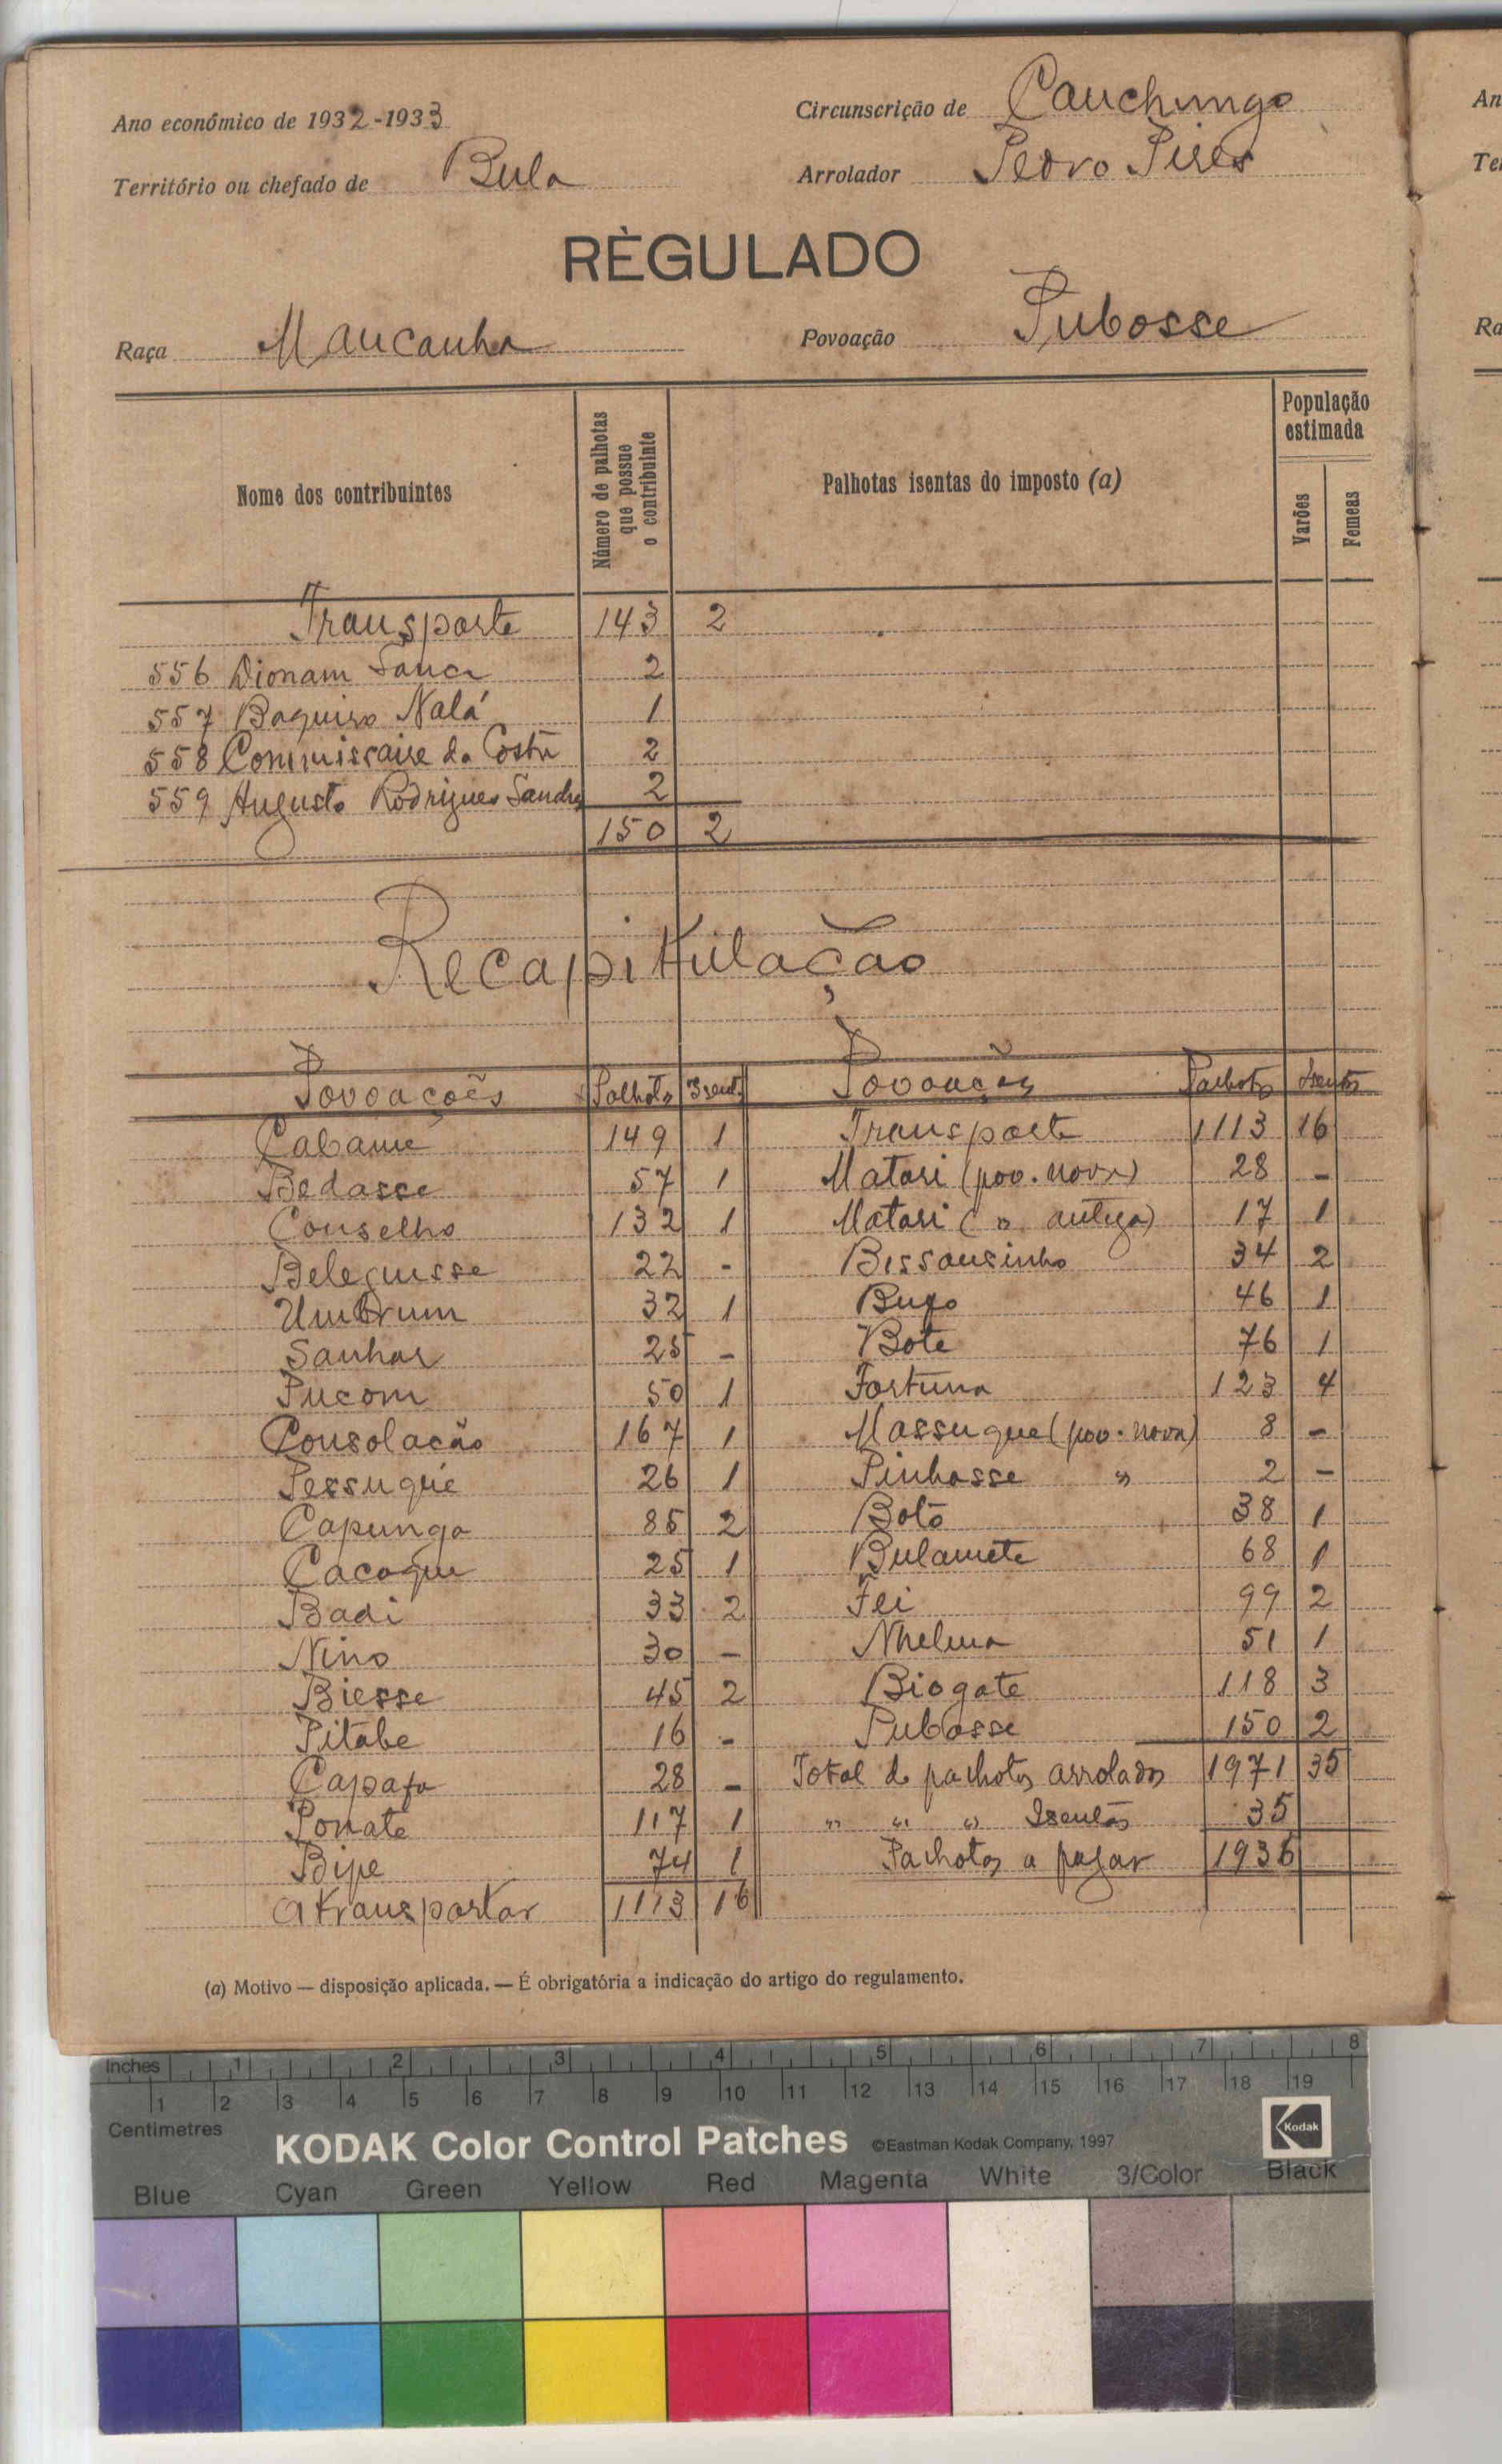 Ano económico de 1932-1933
Circunscrição de Cauchungo
Território ou chefado de Bula
Arrolador Pedro Pires
RÈGULADO
Raça Maucanha
Povoação Pubosse
Nome dos contribuintes
Número de palhotas que possue o contribuinte
Palhotas isentas do imposto (a)
População estimada
Varões
Femeas
Transporte 143 2
556 Dionam Sanca 2
557 Baquiro Nalá 1
558 Commissaire da Costa 2
559 Augusto Rodrigues Sandy 2
150 2
Recapitulação
Povoações Palhotas Isent. Povoações Palhotas Isentos
Cabame 149 1 Transporte 1113 16
Bedasse 57 1 Matari (pov. nova) 28 -
Conselho 132 1 Matari ( " antiga) 17 1
Beleguisse 22 - Bissausinho 34 2
Umbrum 32 1 Bugo 46 1
Sanhar 25 - Bote 76 1
Pucom 50 1 Fortuna 123 4
Consolação 167 1 Massuque (pov. nova) 8 -
Pessuque 26 1 Pinhasse " 2 -
Capunga 85 2 Botõ 38 1
Cacoque 25 1 Bulamete 68 1
Badi 33 2 Fei 99 2
Nino 30 - Nhelma 51 1
Biesse 45 2 Biogate 118 3
Pitabe 16 - Pubosse 150 2
Capafa 28 - Total de pachotas arrolados 1971 35
Ponate 117 1 " " " Isentas 35
Bipe 74 1 Pachotas a pagar 1936
A transportar 1113 16
(a) Motivo — disposição aplicada. — É obrigatória a indicação do artigo do regulamento.
An
Te
Ra
Inches 1 2 3 4 5 6 7 8
1 2 3 4 5 6 7 8 9 10 11 12 13 14 15 16 17 18 19
Centimetres
KODAK Color Control Patches ©Eastman Kodak Company, 1997 Kodak
Blue Cyan Green Yellow Red Magenta White 3/Color Black